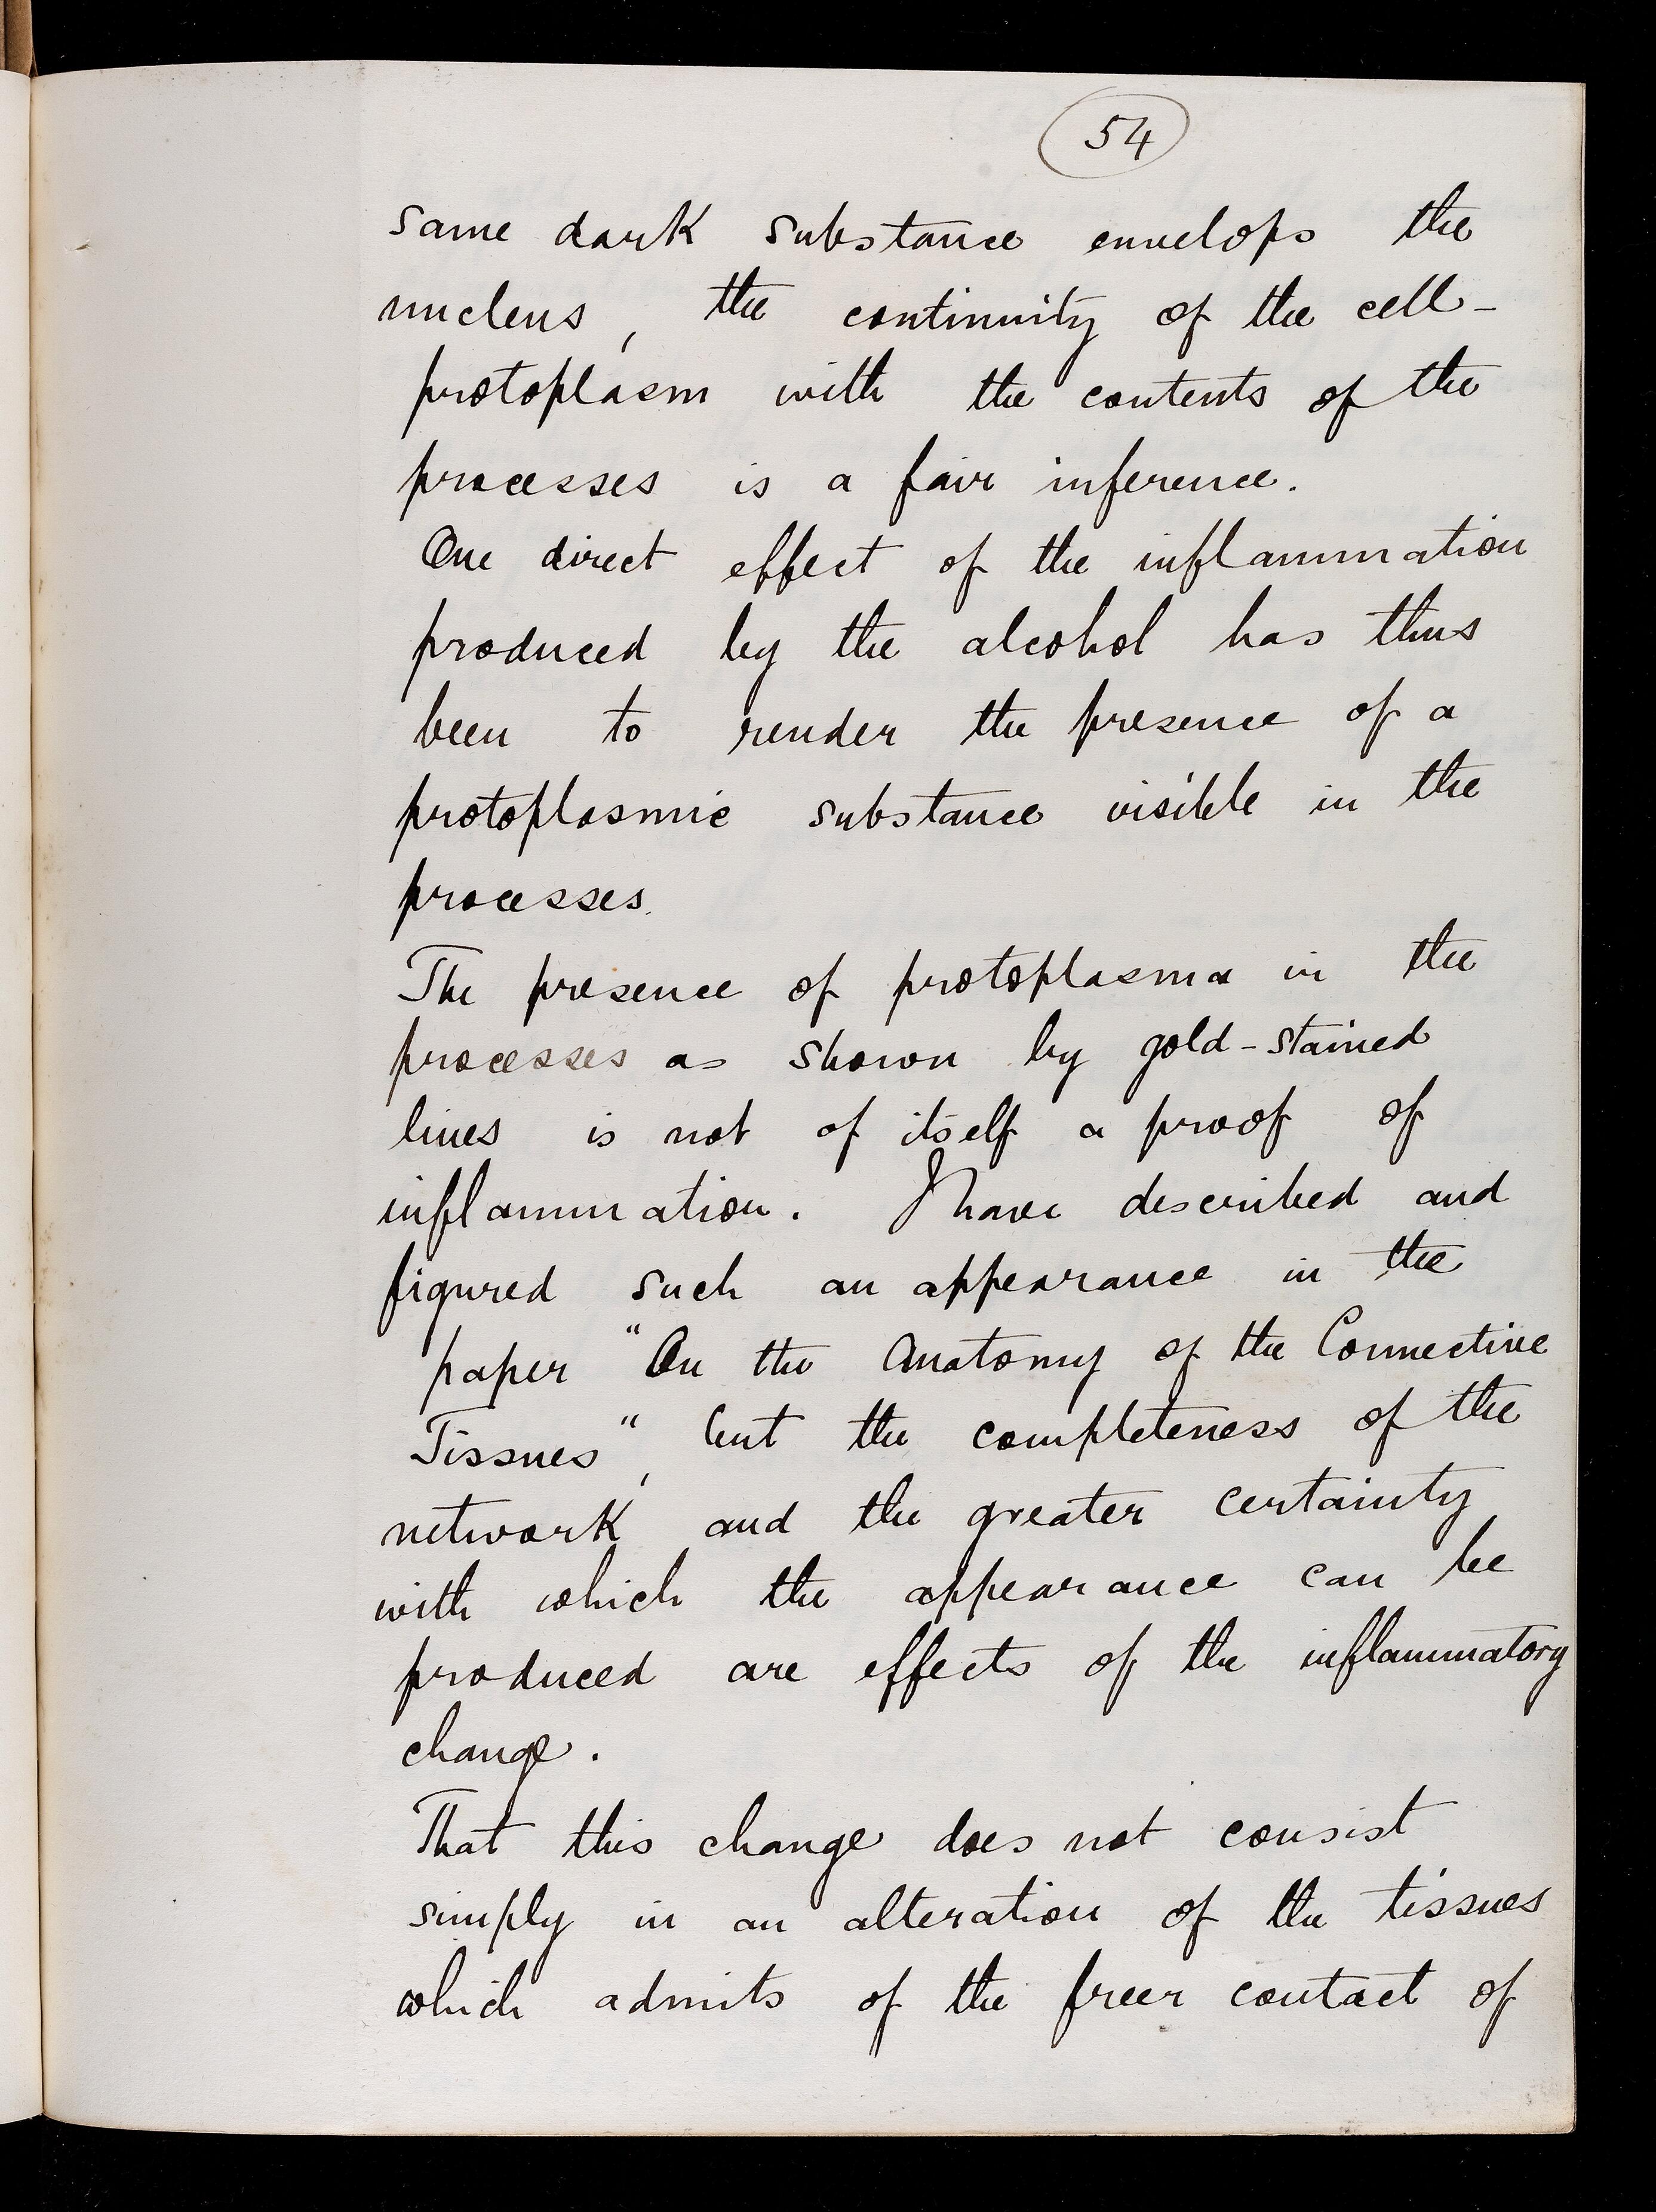 54
same dark substance envelops the
nucleus, the continuity of the cell-
protoplasm with the contents of the
processes is a fair inference.
One direct effect of the inflammation
produced by the alcohol has thus
been to render the presence of a
protoplasmic substance visible in the
processes.
The presence of protoplasma in the
processes as shown by gold-stained
lines is not of itself a proof of
inflammation. I have described and
figured such an appearance in the
paper "On the Anatomy of the Connective
Tissues", but the completeness of the
network and the greater certainty
with which the appearance can be
produced are effects of the inflammatory
change.
That this change does not consist
simply in an alteration of the tissues
which admits of the freer contact of